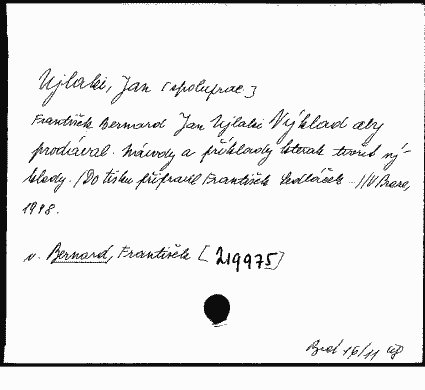 Ujlaki, Jan [spoluprac.]
František Bernard Jan Ujlaki Výklad aby
prodával. Návody a příklady kterak tvořit vý-
klady. /Do tisku připravil František Sedláček V Praze,
1948.
v. Bernard, František [219975]
16/11